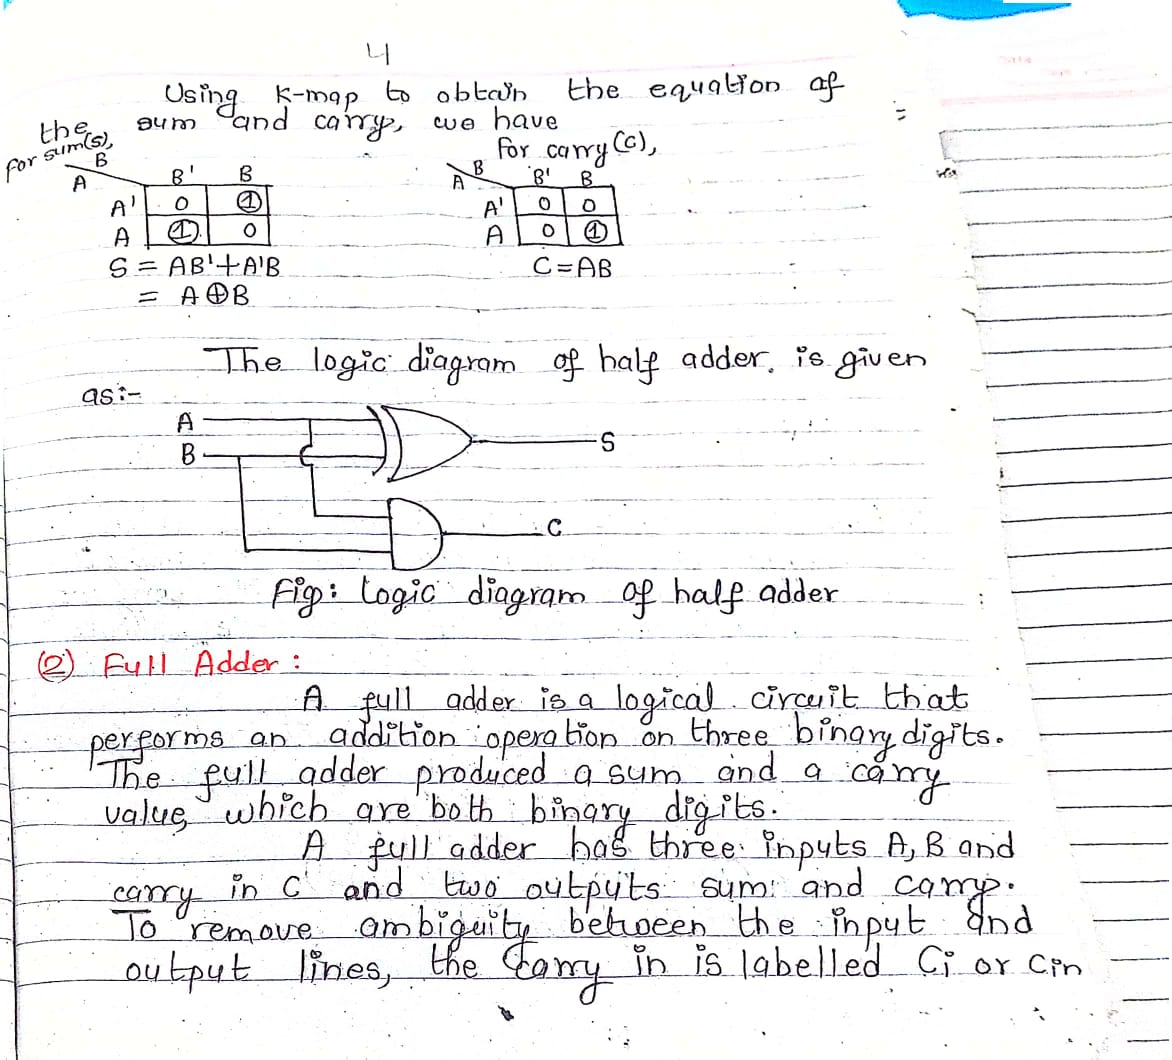 4
Using K-map to obtain the equation of
the sum and carry, we have
for sum(s),
B
A
B' B
A' 0 1
A 1 0
S = AB'+A'B
= A⊕B
for carry(c),
B
A
B' B
A' 0 0
A 0 1
C=AB
The logic diagram of half adder is given
as:-
A
B
S
C
Fig: Logic diagram of half adder
(2) Full Adder:
A full adder is a logical circuit that
performs an addition operation on three binary digits.
The full adder produced a sum and a carry
value, which are both binary digits.
A full adder has three inputs A, B and
carry in C and two outputs sum and carry.
To remove ambiguity between the input and
output lines, the carry in is labelled Ci or Cin